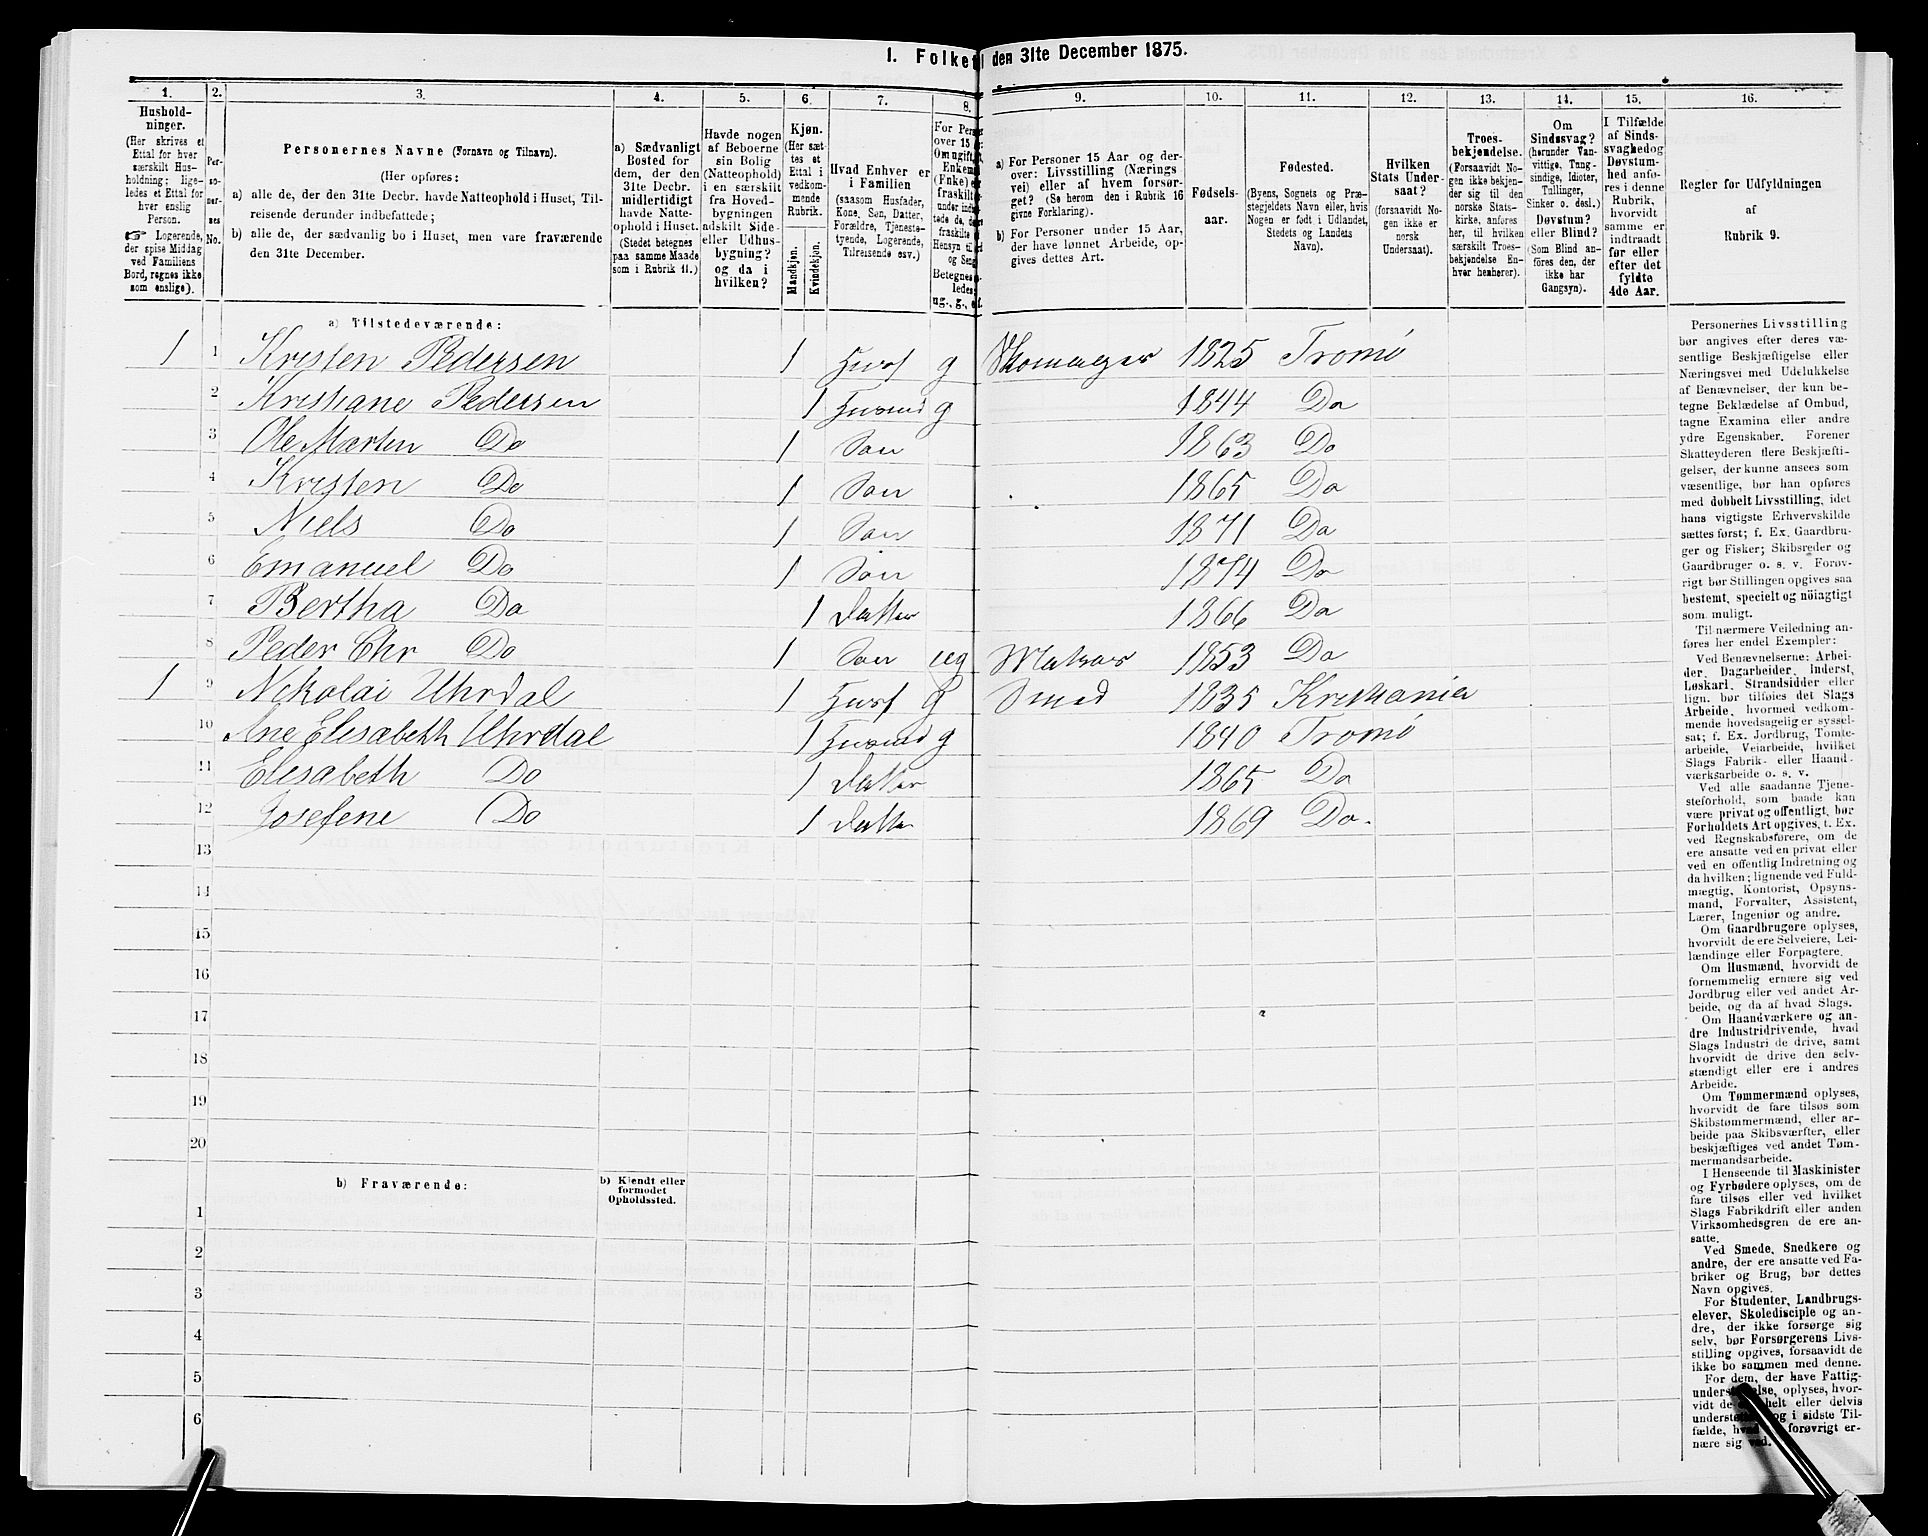 1. Folket den 31te December 1875.
1. 2. 3. 4. 5. 6. 7. 8. 9. 10. 11. 12. 13. 14. 15. 16.
Hushold-
ninger.
(Her skrives et
Ettal for hver
særskilt Hus-
holdning; lige-
ledes et Ettal for
hver enslig
Person.
☞ Logerende,
der spise Middag
ved Familiens
Bord, regnes ikke
som enslige).
Per-
so-
ner-
nes
No.
Personernes Navne (Fornavn og Tilnavn).
(Her opføres:
a) alle de, der den 31te Decbr. havde Natteophold i Huset, Til-
reisende derunder indbefattede;
b) alle de, der sædvanlig bo i Huset, men vare fraværende
den 31te December.
a) Sædvanligt
Bosted for
dem, der den
31te Decbr.
midlertidigt
havde Natte-
ophold i Huset.
(Stedet betegnes
paa samme Maade
som i Rubrik 11.)
Havde nogen
af Beboerne
sin Bolig
(Natteophold)
i en særskilt
fra Hoved-
bygningen
adskilt Side-
eller Udhus-
bygning?
og da i
hvilken?
Kjøn.
(Her sæt-
tes et
Ettal i
vedkom-
mende
Rubrik.
Mandkjøn.
Kvindekjøn.
Hvad Enhver er
i Familien
(saasom Husfader,
Kone, Søn, Datter,
Forældre, Tjeneste-
tyende, Logerende,
Tilreisende osv.)
For Perso
over 15
Om ugift,
Enkem
(Enke)
fraskilt
under ind
tede de, der
fraskilte
Hensyn til
og Seng
Betegnes
ledes:
ug., g., e f.
a) For Personer 15 Aar og der-
over: Livsstilling (Nærings
vei) eller af hvem forsør-
get? (Se herom den i Rubrik 16
givne Forklaring).
b) For Personer under 15 Aar,
der have lønnet Arbeide, op-
gives dettes Art.
Fødsels-
aar.
Fødested.
(Byens, Sognets og Præ-
stegjeldets Navn eller, hvis
Nogen er født i Udlandet,
Stedets og Landets
Navn).
Hvilken
Stats Under-
saat?
(forsaavidt No-
gen ikke er
norsk
Undersaat).
Troes-
bekjendelse.
(Forsaavidt No-
gen ikke bekjen-
der sig til den
norske Stats-
kirke, anføres
her, til hvilken
særskilt Troes-
bekjendelse En-
hver henhører).
Om
Sindssvag?
(herunder Van-
vittige, Tung-
sindige, Idioter,
Tullinger,
Sinker o. desl.)
Døvstum?
eller Blind?
(Som Blind an-
føres den, der
ikke har
Gangsyn).
I Tilfælde
af Sinds-
svaghed og
Døvstum-
hed anfø-
res i denne
Rubrik,
hvorvidt
samme er
indtraadt
før eller
efter det
fyldte
4de Aar.
Regler for Udfyldningen
af
Rubrik 9.
a) Tilstedeværende:
1 1 Kristen Pedersen 1 Husf g Skomager 1825 Tromø
2 Kristiane Pedersen 1 Husmd g 1844 Do
3 Ole Marten Do 1 Søn 1863 Do
4 Kristen Do 1 Søn 1865 Do
5 Niels Do 1 Søn 1871 Do
6 Emanuel Do 1 Søn 1874 Do
7 Bertha Do 1 Datter 1866 Do
8 Peder Chr Do 1 Søn ug Matros 1853 Do
1 9 Nikolai Uhrdal 1 Husf g Smed 1835 Kristiania
10 Ane Elisabeth Uhrdal 1 Husmd g 1840 Tromø
11 Elisabeth Do 1 Datter 1865 Do
12 Josefene Do 1 Datter 1869 Do.
13
14
15
16
17
18
19
20
b) Fraværende:
b) Kjendt eller
formodet
Opholdssted.
1
2
3
4
5
6
Personernes Livsstilling
bør angives efter deres væ-
sentlige Beskjæftigelse eller
Næringsvei med Udelukkelse
af Benævnelser, der kun be-
tegne Beklædelse af Ombud,
tagne Examina eller andre
ydre Egenskaber. Forener
Skatteyderen flere Beskjæfti-
gelser, der kunne ansees som
væsentlige, bør han opføres
med dobbelt Livsstilling, idet
hans vigtigste Erhvervskilde
sættes først; f. Ex. Gaardbru-
ger og Fisker; Skibsreder og
Gaardbruger o. s. v. Forøv-
rigt bør Stillingen opgives saa
bestemt, specielt og nöiagtigt
som muligt.
Til nærmere Veiledning an-
føres her endel Exempler:
Ved Benævnelserne: Arbei-
der, Dagarbeider, Inderst,
Løskarl, Strandsidder eller
lign. bør tilføies det Slags
Arbeide, hvormed vedkom-
mende hovedsagelig er syssel-
sat; f. Ex. Jordbrug, Tomte-
arbeide, Veiarbeide, hvilket
Slags Fabrik- eller Haand-
værksarbeide o. s. v.
Ved alle saadanne Tjene-
steforhold, som baade kan
være privat og offentligt, bør
Forholdets Art opgives, t. Ex.
ved Regnskabsførere, om de
ere ansatte ved en privat eller
ved en offentlig Indretning og
da hvilken; lignende ved Fuld-
mægtig, Kontorist, Opsyns-
mand, Forvalter, Assistent,
Lærer, Ingeniør og andre.
Om Gaardbrugere oplyses,
hvorvidt de ere Selveiere, Lei-
lændinge eller Forpagtere.
Om Husmænd, hvorvidt de
fornemmelig ernære sig ved
Jordbrug eller ved andet Ar-
beide, og da af hvad Slags.
Om Haandværkere og an-
dre Industridrivende, hvad
Slags Industri de drive, samt
hvorvidt de drive den selv-
stændigt eller ere i andres
Arbeide.
Om Tømmermænd oplyses,
hvorvidt de fare tilsøs som
Skibstømmermænd, eller ar-
beide paa Skibsværfter, eller
beskjæftiges ved andet Tøm-
mermandsarbeide.
I Henseende til Maskinister
og Fyrbødere oplyses, om de
fare tilsøs eller ved hvilket
Slags Fabrikdrift eller anden
Virksomhedsgren de ere an-
satte.
Ved Smede, Snedkere og
andre, der ere ansatte ved Fa-
briker og Brug, bør dettes
Navn opgives.
For Studenter, Landbrugs-
elever, Skoledisciple og an-
dre, der ikke forsørge sig
selv, bør Forsørgerens Livs-
stilling opgives, forsaavidt de
ikke bo sammen med denne.
For dem, der have Fattig-
understøttelse, oplyses, hvor-
vidt de helt eller delvis
understø og i sidste Til-
fælde, hvad forøvrigt er-
nære sig ved.